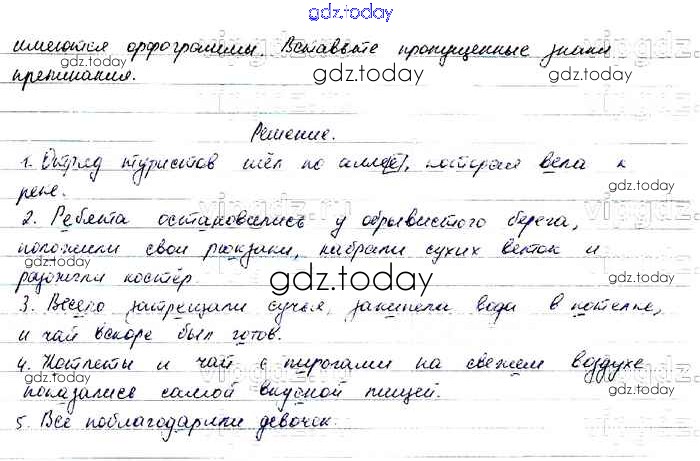 gdz.today
имеются орфограммы. Вставьте пропущенные знаки
gdz.today
gdz.today
gdz.today
препинания.
Решение.
1. Отряд туристов шёл по аллее, которая вела к
gdz.today
реке.
2. Ребята остановились у обрывистого берега,
gdz.today
положили свои рюкзаки, набрали сухих веток и
gdz.today
разожгли костёр.
gdz.today
3. Весело затрещали сучья, закипела вода в котелке,
gdz.today
и чай вскоре был готов.
4. Котлеты и чай с пирогами на свежем воздухе
gdz.today
gdz.today
показались самой вкусной пищей.
5. Все поблагодарили девочек.
gdz.today